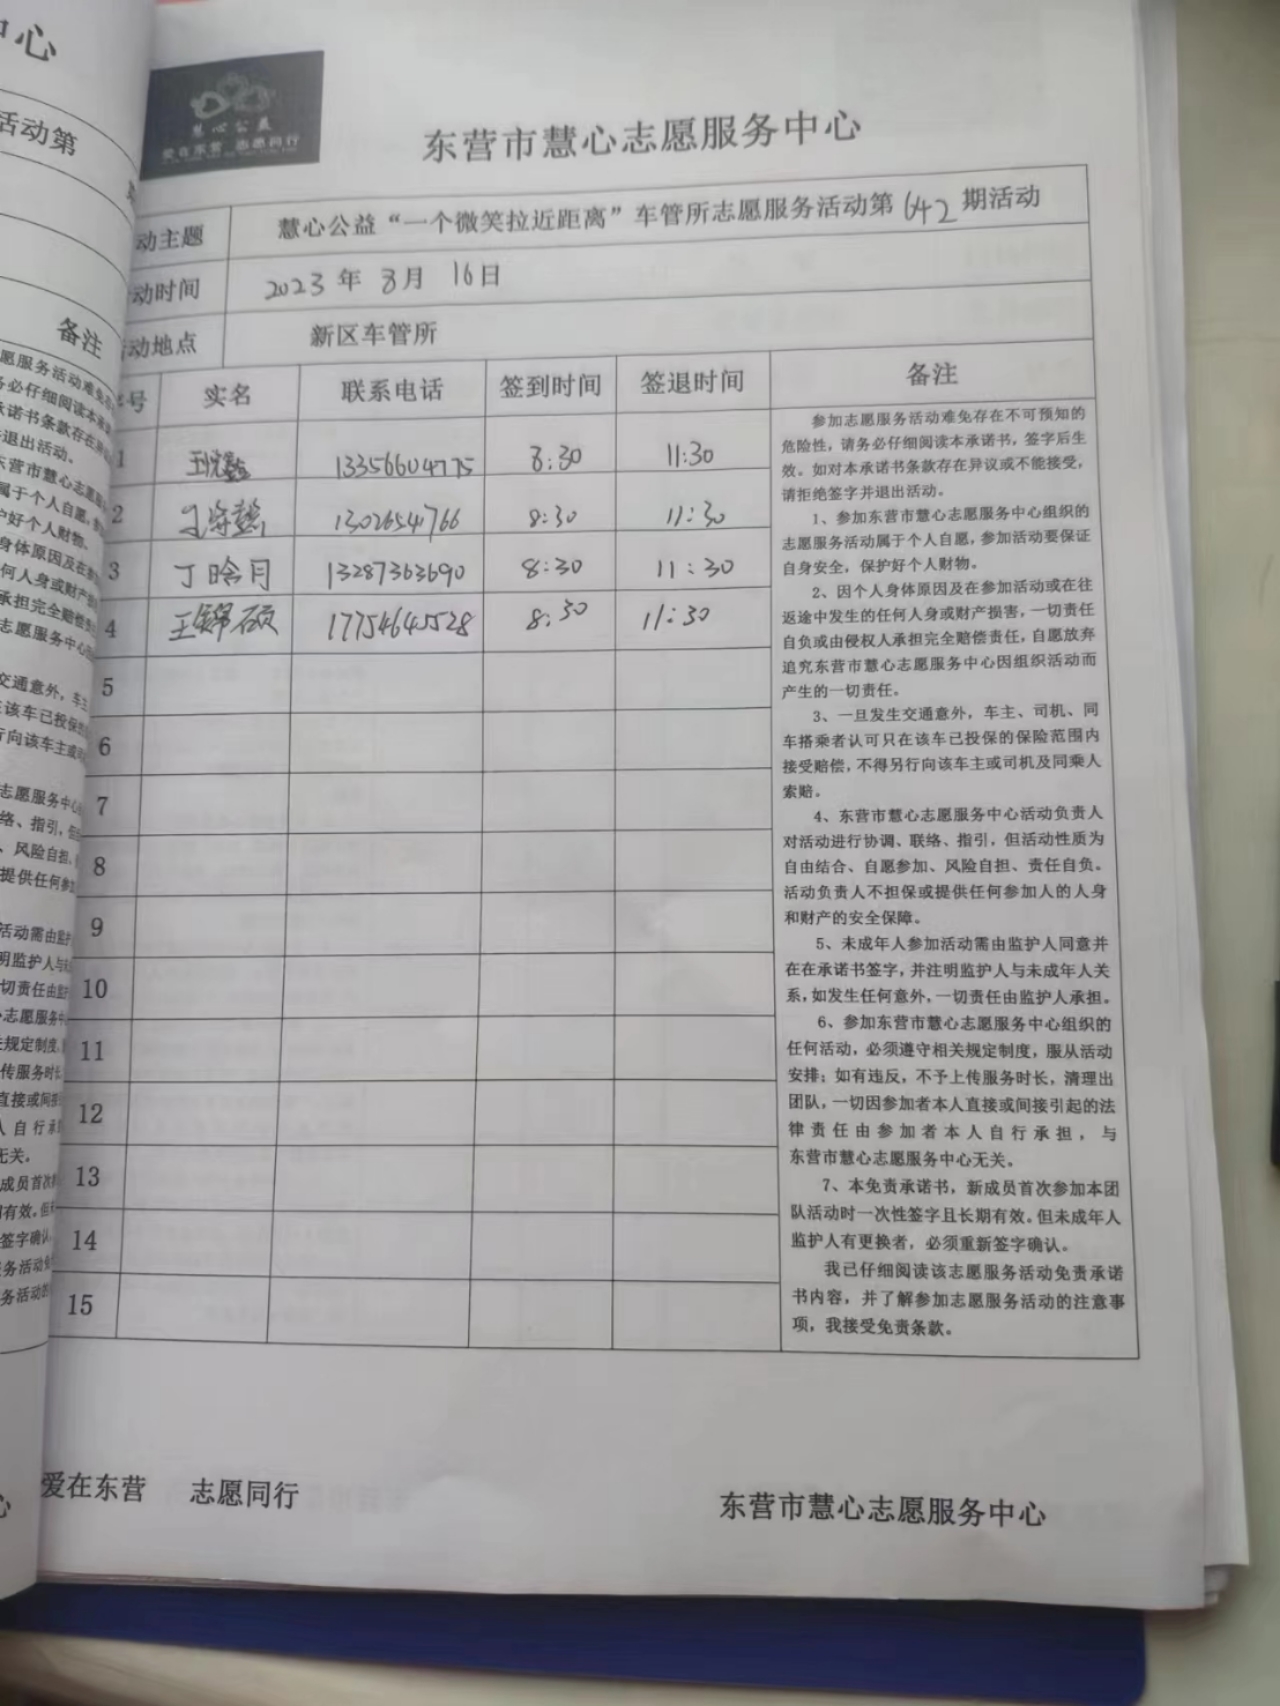 慧心公益
爱在东营 志愿同行
东营市慧心志愿服务中心
动主题 慧心公益“一个微笑拉近距离”车管所志愿服务活动第642期活动
动时间 2023年 8月 16日
动地点 新区车管所
号 实名 联系电话 签到时间 签退时间 备注
1 13356604775 8:30 11:30
2 13026554766 8:30 11:30
3 丁晗月 13287363690 8:30 11:30
4 17754645528 8:30 11:30
5
6
7
8
9
10
11
12
13
14
15
参加志愿服务活动难免存在不可预知的
危险性，请务必仔细阅读本承诺书，签字后生
效。如对本承诺书条款存在异议或不能接受，
请拒绝签字并退出活动。
1、参加东营市慧心志愿服务中心组织的
志愿服务活动属于个人自愿，参加活动要保证
自身安全，保护好个人财物。
2、因个人身体原因及在参加活动或在往
返途中发生的任何人身或财产损害，一切责任
自负或由侵权人承担完全赔偿责任，自愿放弃
追究东营市慧心志愿服务中心因组织活动而
产生的一切责任。
3、一旦发生交通意外，车主、司机、同
车搭乘者认可只在该车已投保的保险范围内
接受赔偿，不得另行向该车主或司机及同乘人
索赔。
4、东营市慧心志愿服务中心活动负责人
对活动进行协调、联络、指引，但活动性质为
自由结合、自愿参加、风险自担、责任自负。
活动负责人不担保或提供任何参加人的人身
和财产的安全保障。
5、未成年人参加活动需由监护人同意并
在在承诺书签字，并注明监护人与未成年人关
系，如发生任何意外，一切责任由监护人承担。
6、参加东营市慧心志愿服务中心组织的
任何活动，必须遵守相关规定制度，服从活动
安排；如有违反，不予上传服务时长，清理出
团队，一切因参加者本人直接或间接引起的法
律责任由参加者本人自行承担，与
东营市慧心志愿服务中心无关。
7、本免责承诺书，新成员首次参加本团
队活动时一次性签字且长期有效。但未成年人
监护人有更换者，必须重新签字确认。
我已仔细阅读该志愿服务活动免责承诺
书内容，并了解参加志愿服务活动的注意事
项，我接受免责条款。
爱在东营 志愿同行
东营市慧心志愿服务中心